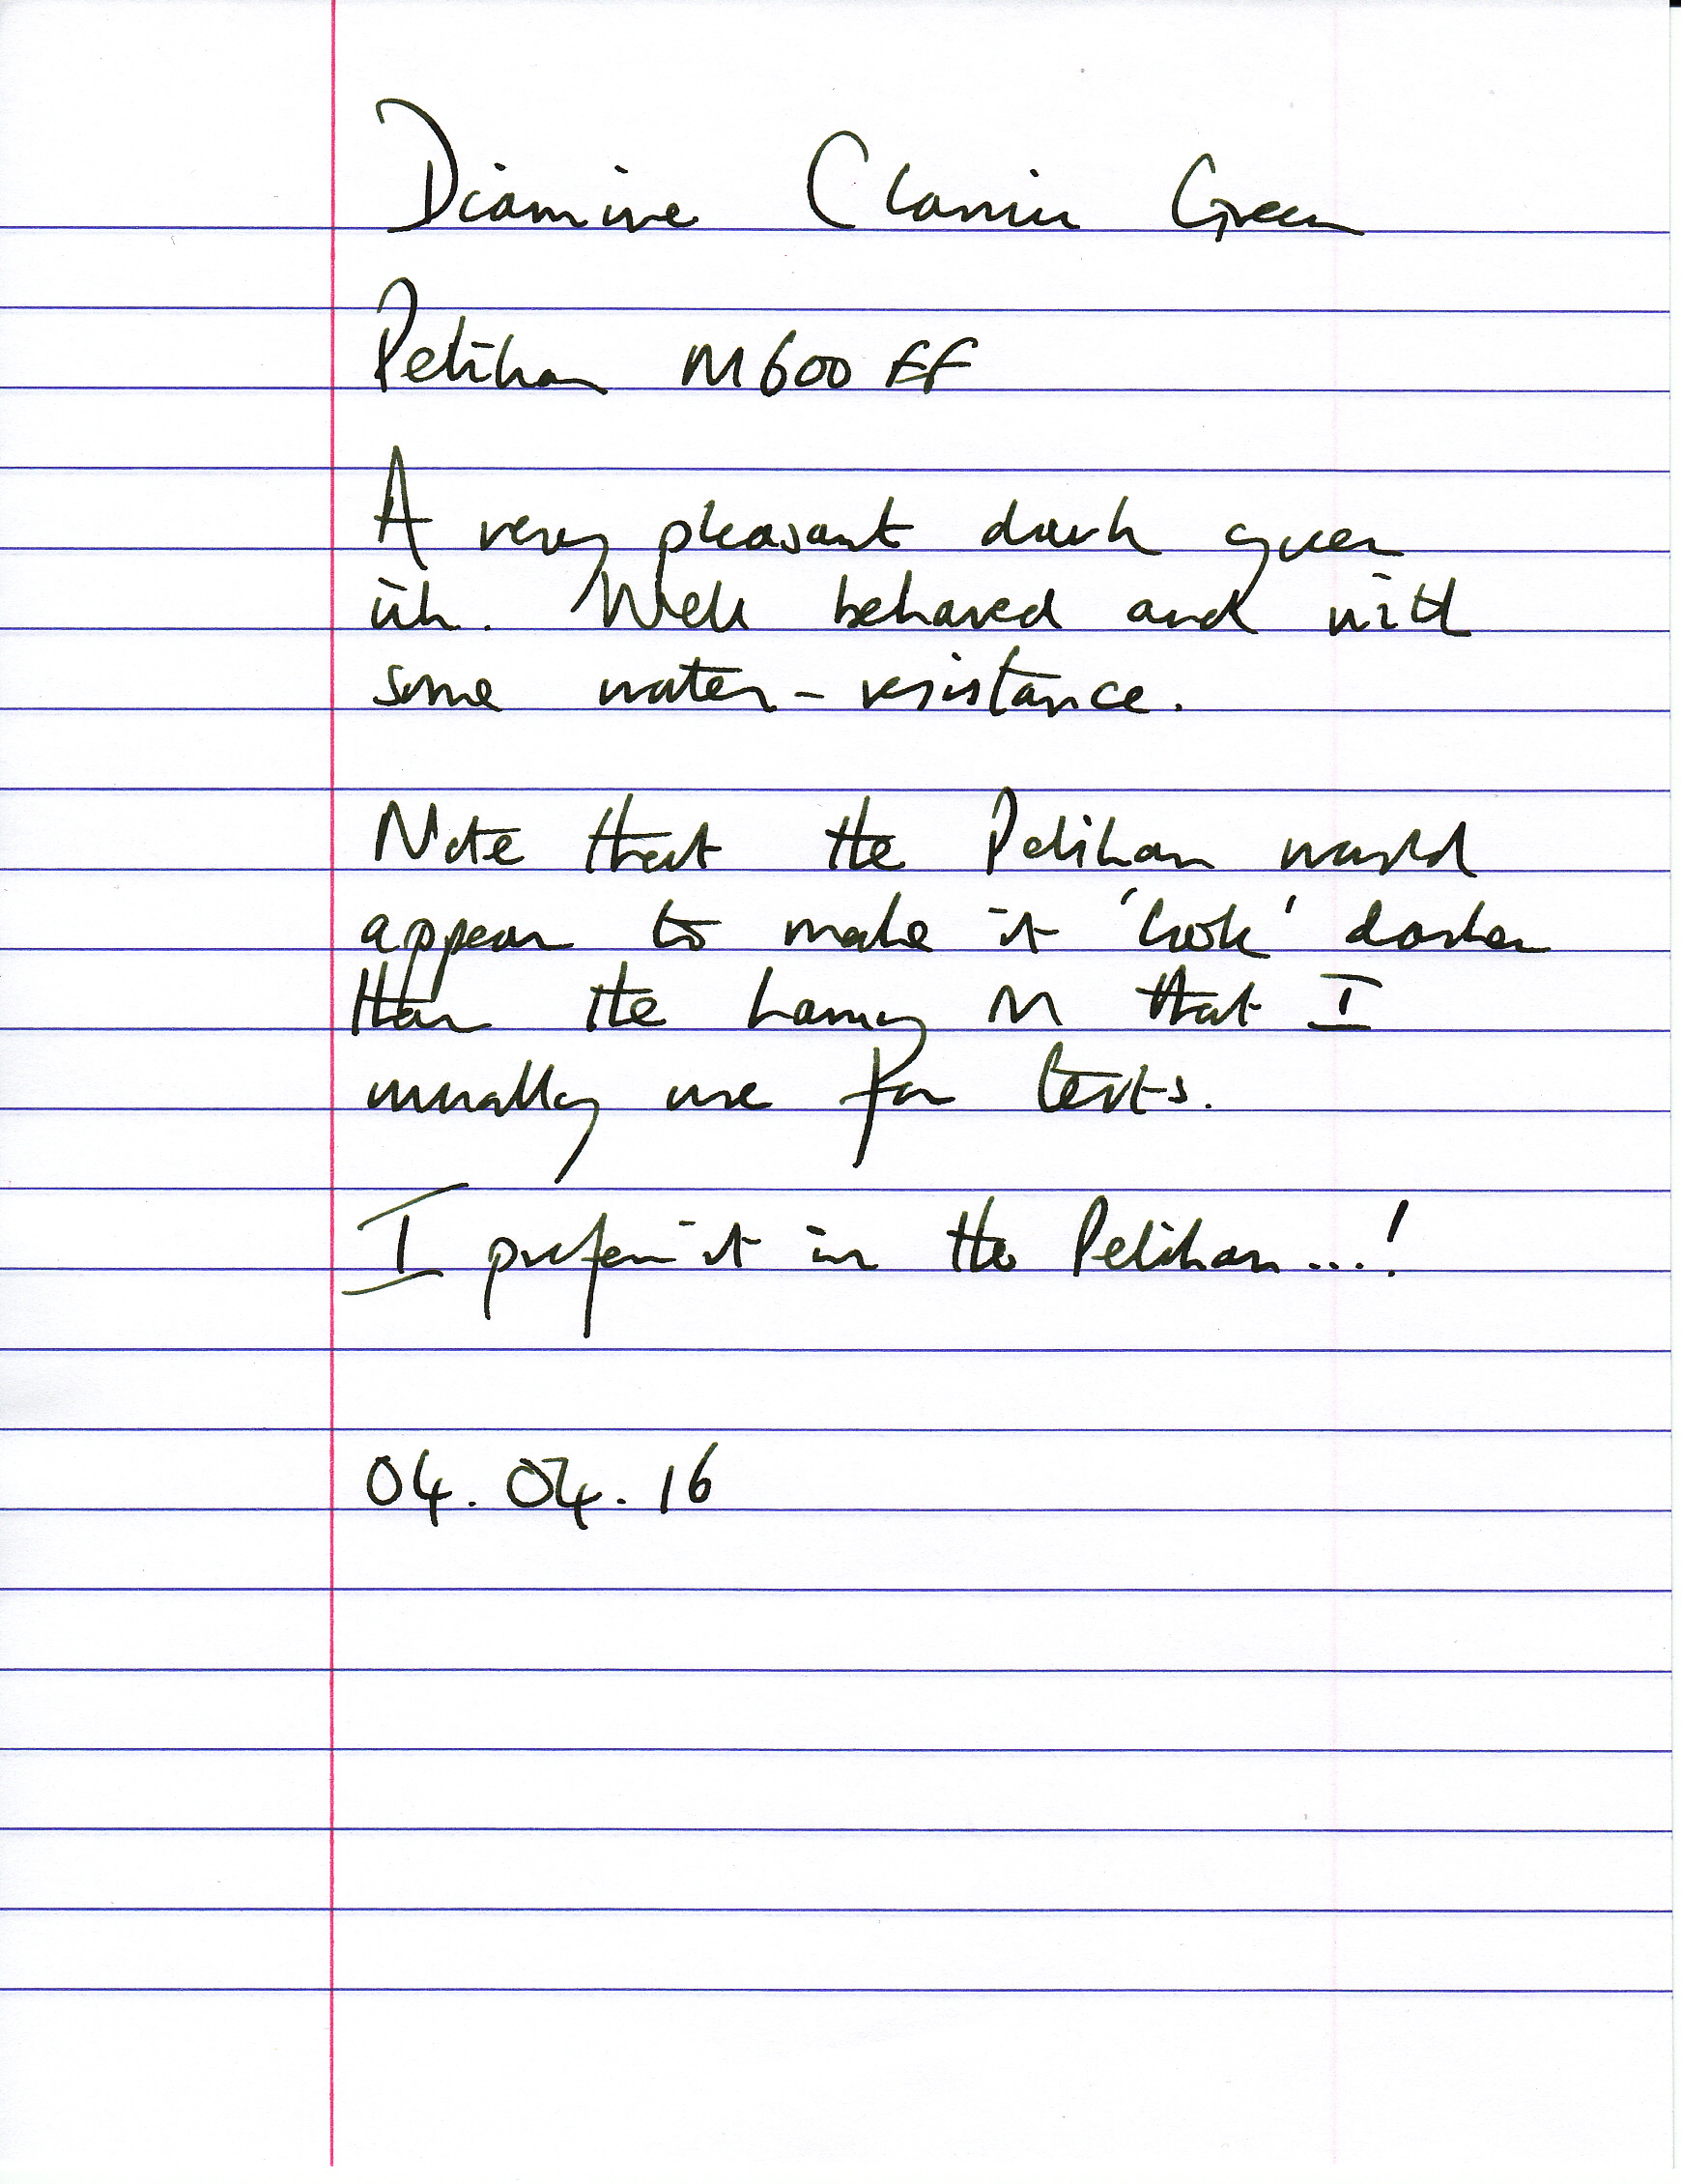 Diamine Classic Green
Pelikan M600 EF
A very pleasant dark green
ink. Well behaved and with
some water-resistance.
Note that the Pelikan would
appear to make it 'look' darker
than the Lamy M that I
usually use for tests.
I prefer it in the Pelikan...!
04.04.16